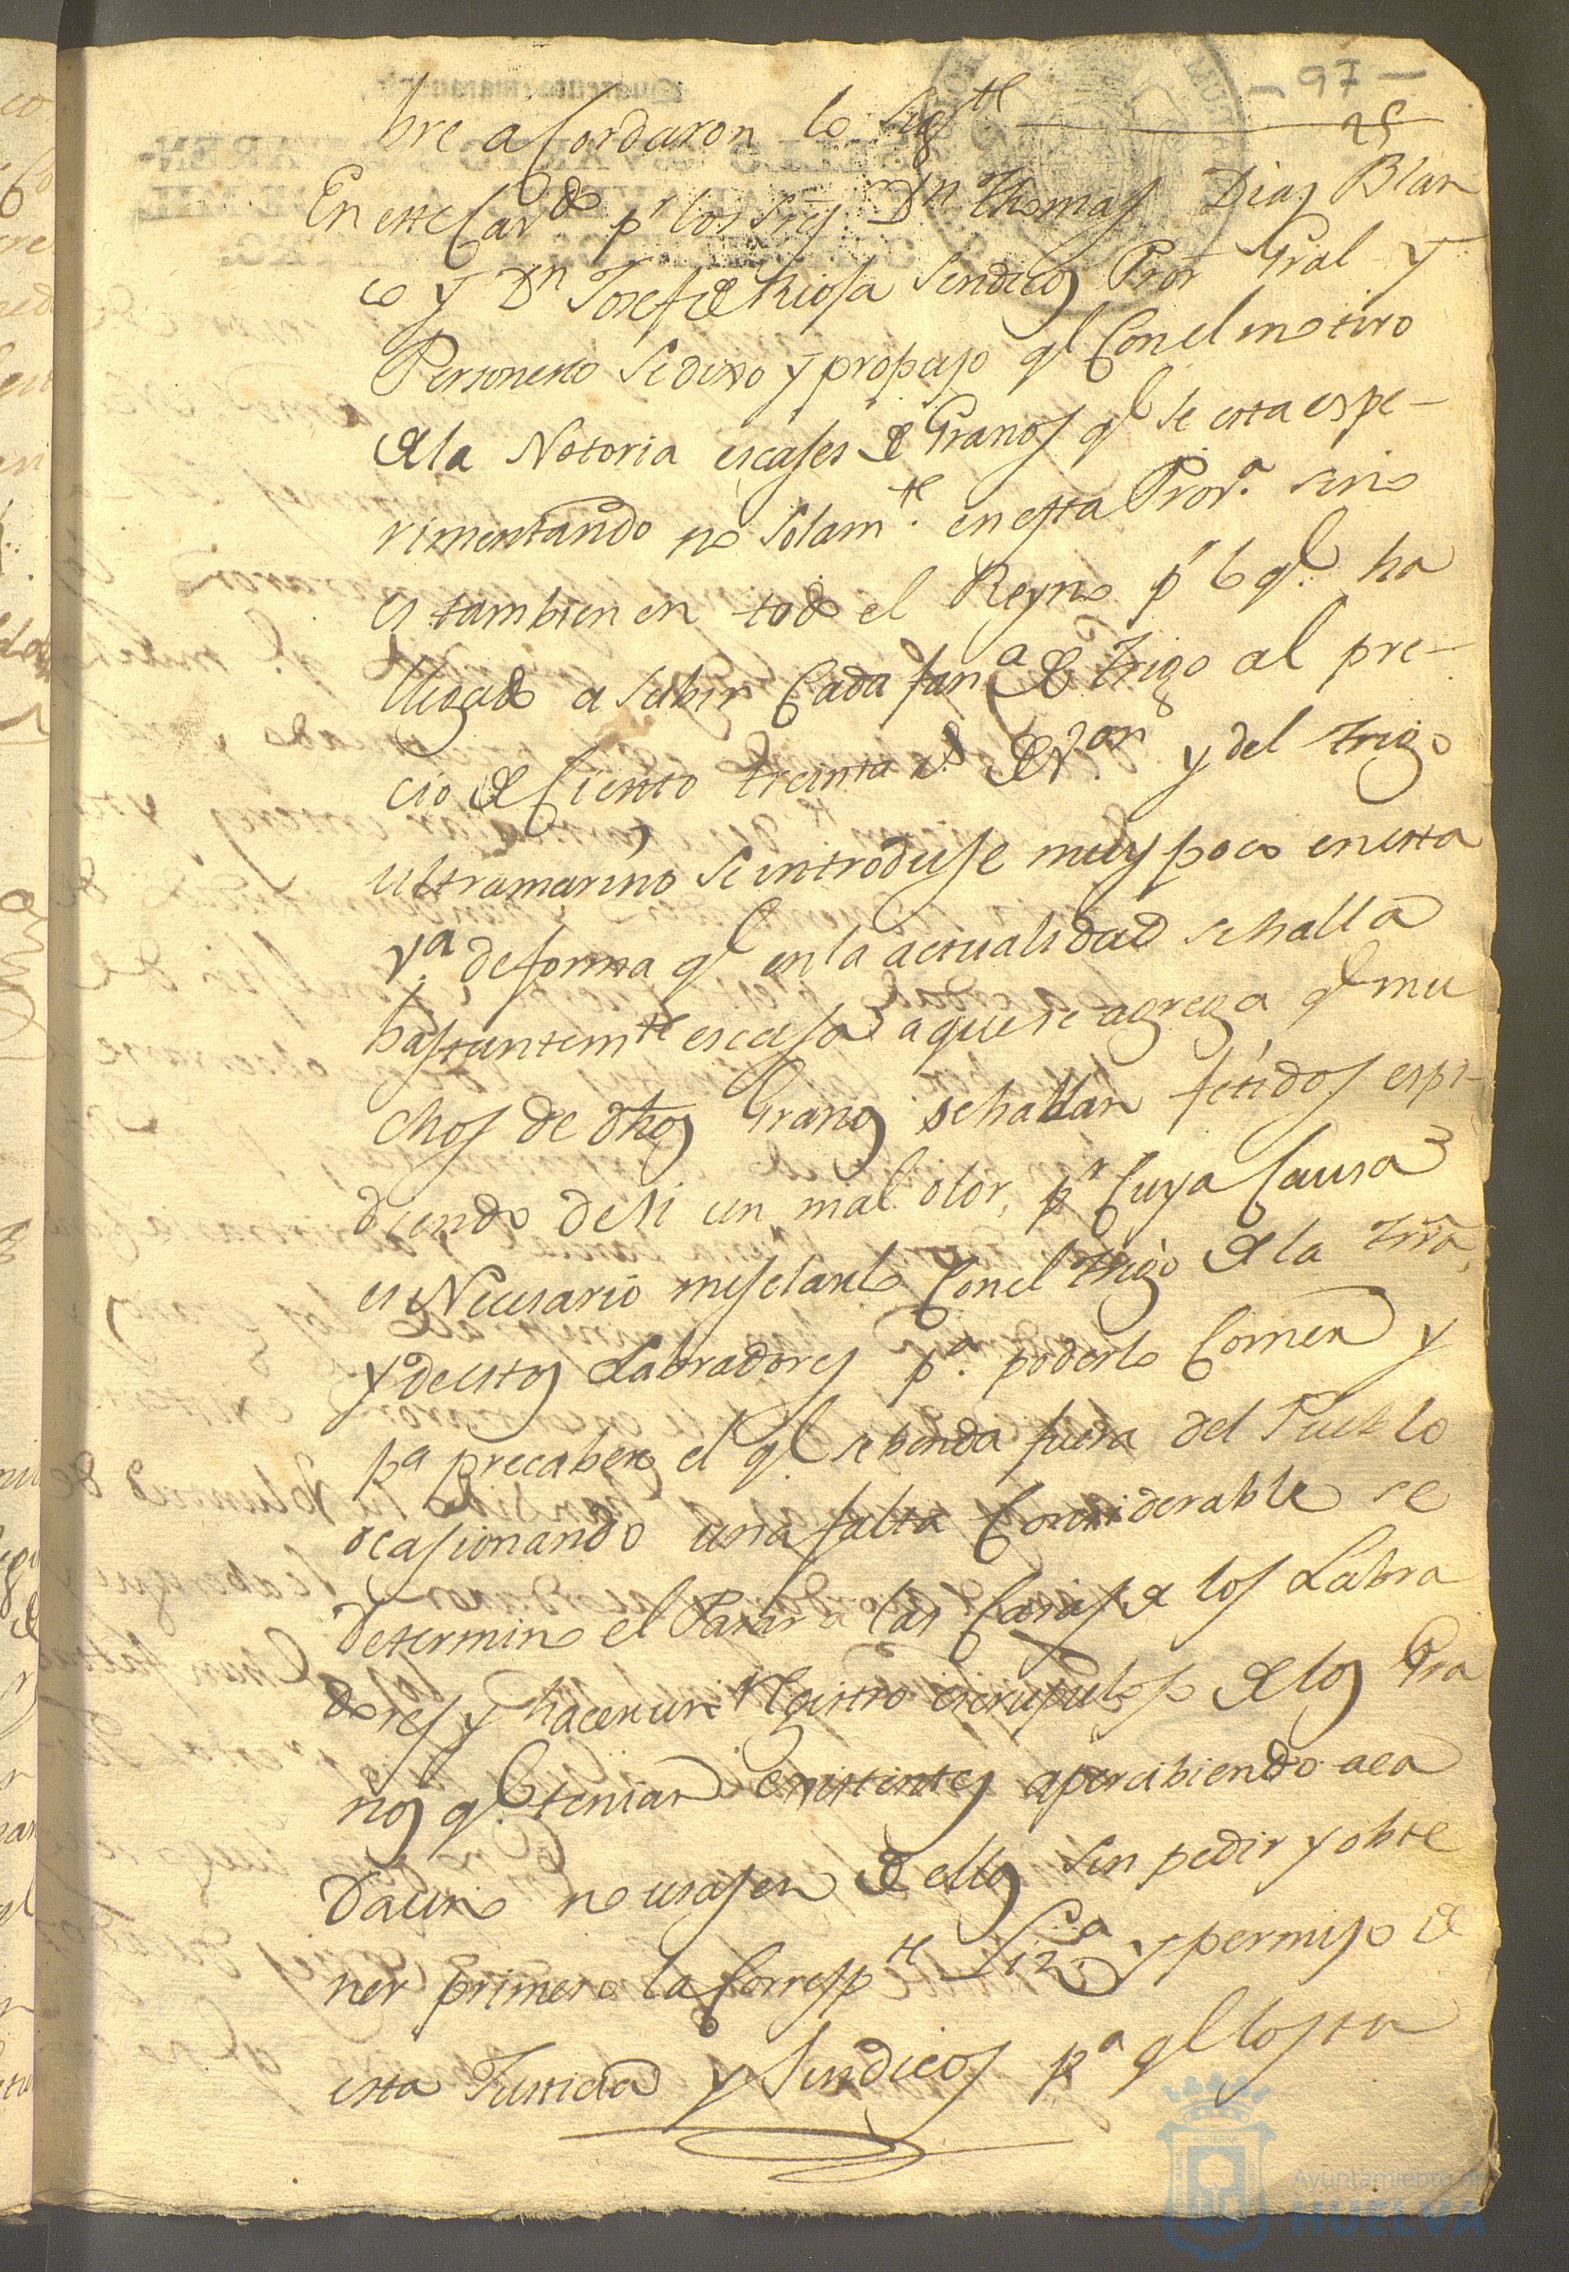 - 97 -
25
bre acordaron lo sigte
En este Cavdo pr los Sres Dn Thomas Dias Blan
co y Dn Josef de Riosa Sindicos Pror Gral y
Personero se dixo y propuso ql Con el motivo
de la Notoria escases de Granos ql se esta espe-
rimentando no Solamte. en esta Prova. sino
es tambien en todo el Reyno pr lo ql. ha
llegado a subir Cada fana de trigo al pre-
cio de Ciento treinta rs de Von. y del trigo
ultramarino se introduse muy poco en esta
Va. de forma ql en la actualidad se halla
bastantemte escaso a que se agrega ql mu
chos de dhos Granos se hallan fetidos espi-
diendo de si un mal olor, pr Cuya Causa
es Necesario mesclarlo Con el trigo de la trra
y de estos Labradores pa. poderlo Comer y
pa precaber el ql se benda fuera del Pueblo
ocasionando una falta Considerable se
determino el Pasar a las Casas de los Labra
dores y hacer un Registro escrupuloso de los Gra
nos ql. tenian existentes apercibiendo a ca
da uno no usasen de ellos sin pedir y obte
ner primero la Correspte Liza. y permiso de
esta Justicia y Sindicos pa ql
Ayuntamiento de
HUELVA